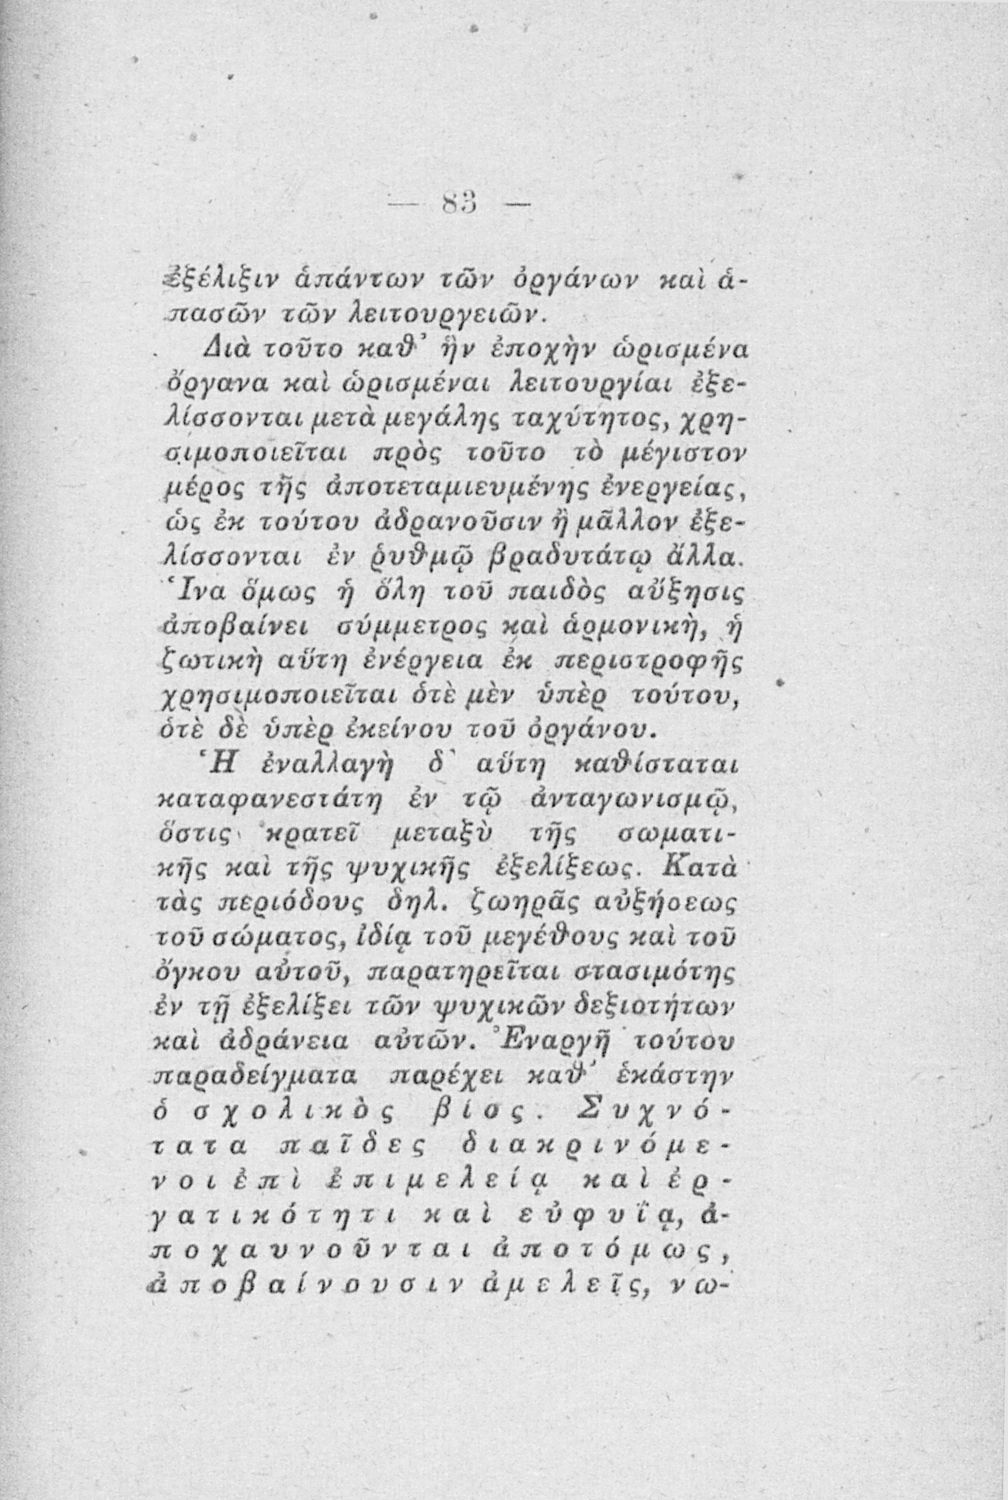 — 83 —
ἐξέλιξιν ἁπάντων τῶν ὀργάνων καὶ ἁ-
πασῶν τῶν λειτουργειῶν.
Διὰ τοῦτο καθ' ἣν ἐποχὴν ὡρισμένα
ὄργανα καὶ ὡρισμέναι λειτουργίαι ἐξε-
λίσσονται μετὰ μεγάλης ταχύτητος, χρη-
σιμοποιεῖται πρὸς τοῦτο τὸ μέγιστον
μέρος τῆς ἀποτεταμιευμένης ἐνεργείας,
ὡς ἐκ τούτου ἀδρανοῦσιν ἢ μᾶλλον ἐξε-
λίσσονται ἐν ῥυθμῷ βραδυτάτῳ ἄλλα.
Ἵνα ὅμως ἡ ὅλη τοῦ παιδὸς αὔξησις
ἀποβαίνει σύμμετρος καὶ ἁρμονικὴ, ἡ
ζωτικὴ αὕτη ἐνέργεια ἐκ περιστροφῆς
χρησιμοποιεῖται ὁτὲ μὲν ὑπὲρ τούτου,
ὁτὲ δὲ ὑπὲρ ἐκείνου τοῦ ὀργάνου.
Ἡ ἐναλλαγὴ δ' αὕτη καθίσταται
καταφανεστάτη ἐν τῷ ἀνταγωνισμῷ,
ὅστις κρατεῖ μεταξὺ τῆς σωματι-
κῆς καὶ τῆς ψυχικῆς ἐξελίξεως. Κατὰ
τὰς περιόδους δηλ. ζωηρᾶς αὐξήσεως
τοῦ σώματος, ἰδίᾳ τοῦ μεγέθους καὶ τοῦ
ὄγκου αὐτοῦ, παρατηρεῖται στασιμότης
ἐν τῇ ἐξελίξει τῶν ψυχικῶν δεξιοτήτων
καὶ ἀδράνεια αὐτῶν. Ἐναργῆ τούτου
παραδείγματα παρέχει καθ' ἑκάστην
ὁ σχολικὸς βίος. Συχνό-
τατα παῖδες διακρινόμε-
νοι ἐπὶ ἐπιμελείᾳ καὶ ἐρ-
γατικότητι καὶ εὐφυΐᾳ, ἀ-
ποχαυνοῦνται ἀποτόμως,
ἀποβαίνουσιν ἀμελεῖς, νω-